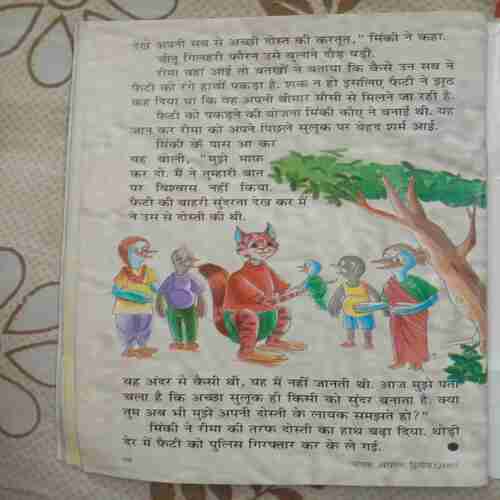 देख अपनी सब से अच्छी दोस्त की करतूत," मिंकी ने कहा.
चीनू गिलहरी फौरन उसे बुलाने दौड़ पड़ी.
रीमा वहां आई तो बतखों ने बताया कि कैसे उन सब ने
फैटी को रंगे हाथों पकड़ा है. शक न हो इसलिए फैटी ने झूठ
कह दिया था कि वह अपनी बीमार मौसी से मिलने जा रही है.
फैटी को पकड़ने की योजना मिंकी कौए ने बनाई थी. यह
जान कर रीमा को अपने पिछले सुलूक पर बेहद शर्म आई.
मिंकी के पास आ कर
वह बोली, "मुझे माफ
कर दो. मैं ने तुम्हारी बात
पर विश्वास नहीं किया.
फैटी की बाहरी सुंदरता देख कर मैं
ने उस से दोस्ती की थी.
वह अंदर से कैसी थी, यह मैं नहीं जानती थी. आज मुझे पता
चला है कि अच्छा सुलूक ही किसी को सुंदर बनाता है. क्या
तुम अब भी मुझे अपनी दोस्ती के लायक समझते हो?"
मिंकी ने रीमा की तरफ दोस्ती का हाथ बढ़ा दिया. थोड़ी
देर में फैटी को पुलिस गिरफ्तार कर के ले गई.